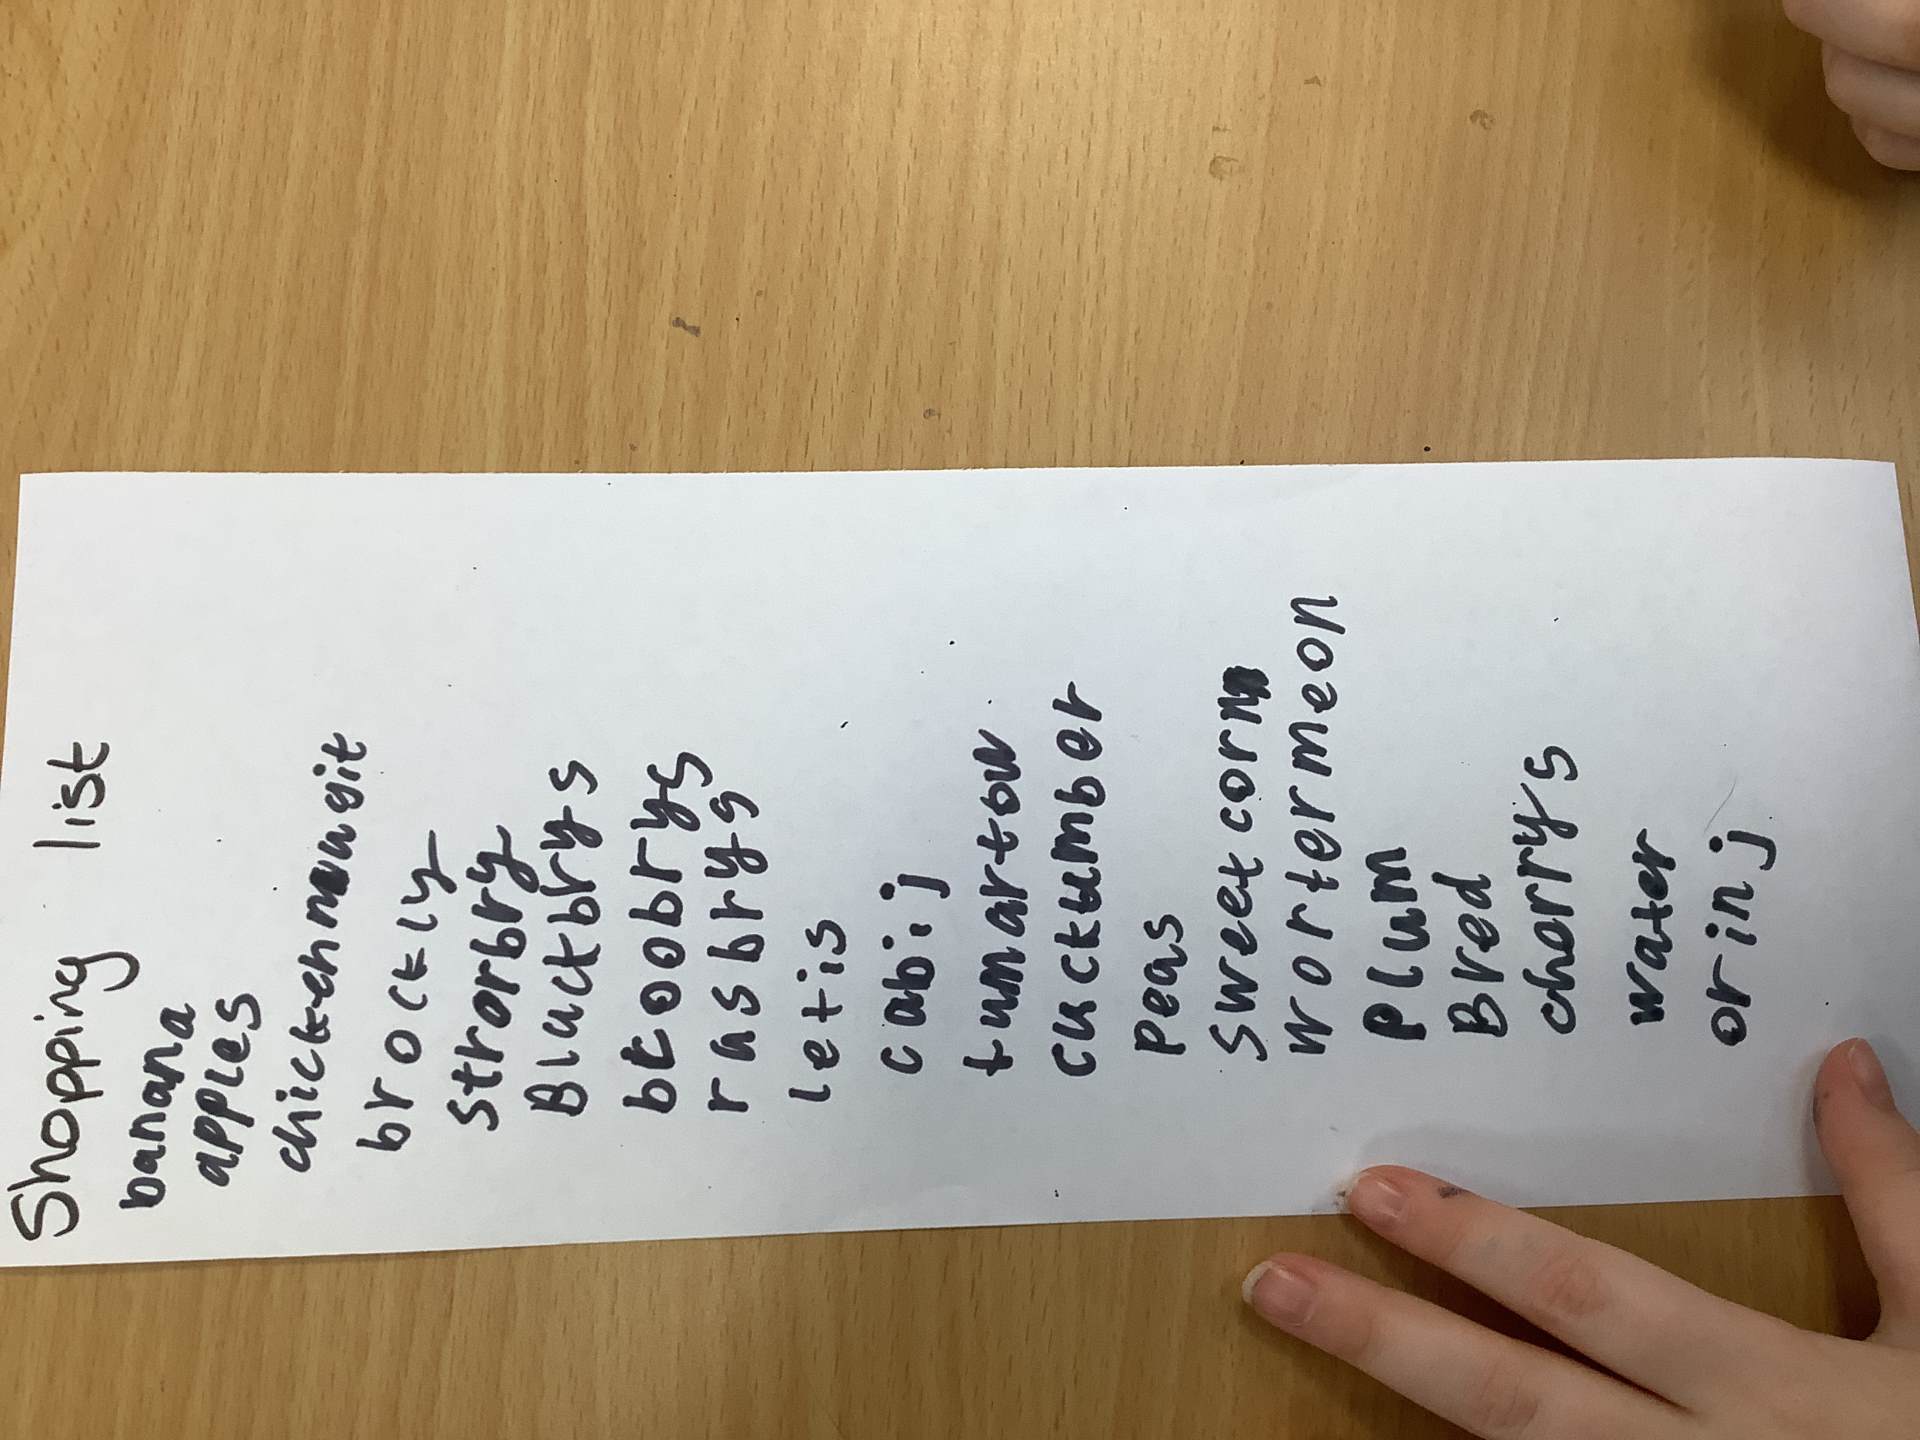 Shopping list
banana
apples
chickennugit
brockly
Strorbry
Blackbrys
bloobrys
rasbrys
letis
cabij
tumartou
cuckumber
peas
Sweetcorn
wortermeon
Plum
Bred
cherrys
water
orinj